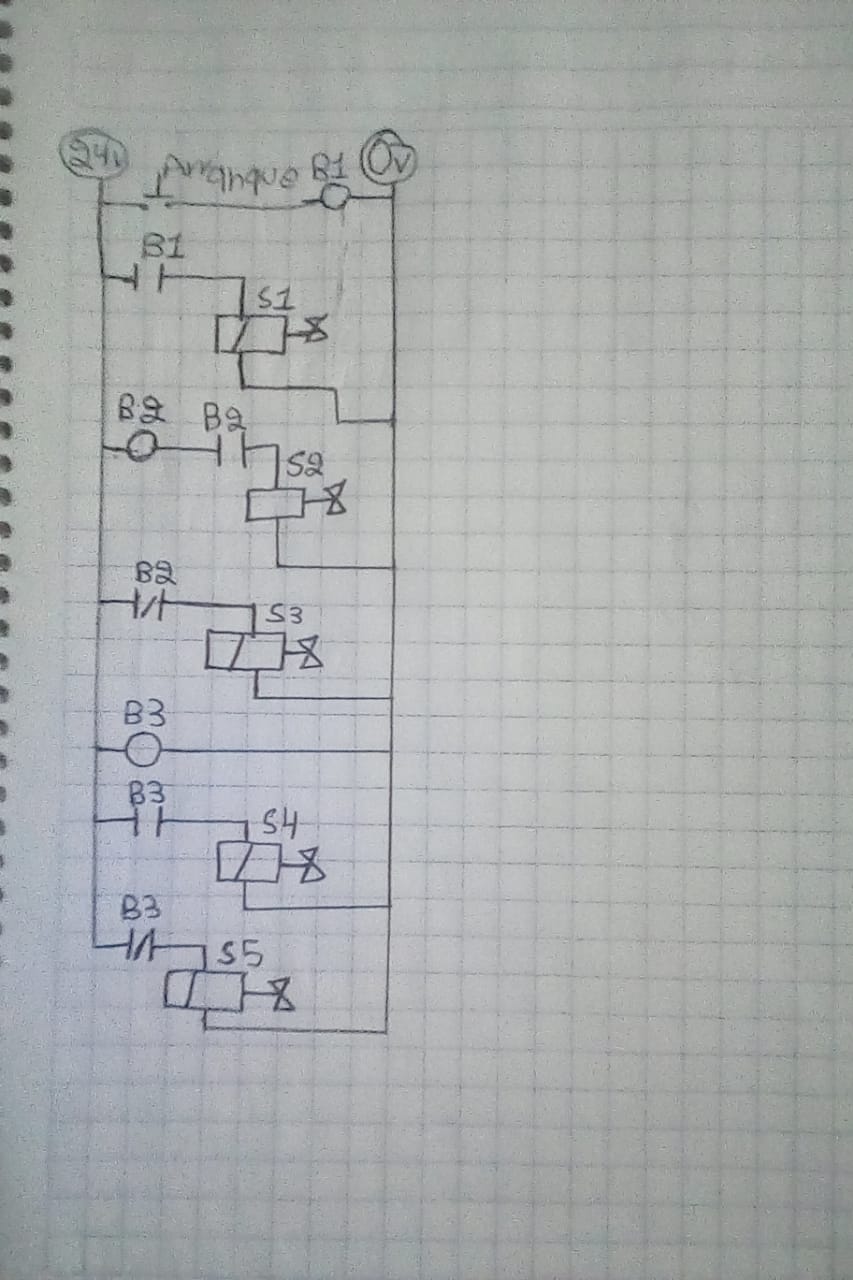 24v Arranque B1 0v
B1
S1
B2 B2
S2
B2
S3
B3
B3
S4
B3
S5